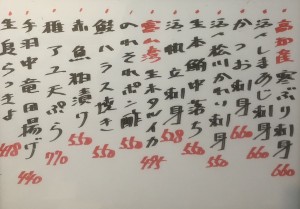 高知産寒ぶり刺身 660
活〆しまあじ刺身 660
活〆松川かれい刺身 660
生本鮪中落ち 550
活帆立刺身 528
富山湾生ホタルイカ 495
のれそれポン酢 550
鮭ハラス焼き 550
赤魚粕漬け 550
稚アユ天ぷら 770
手羽中竜田揚げ 440
生島らっきょ 418